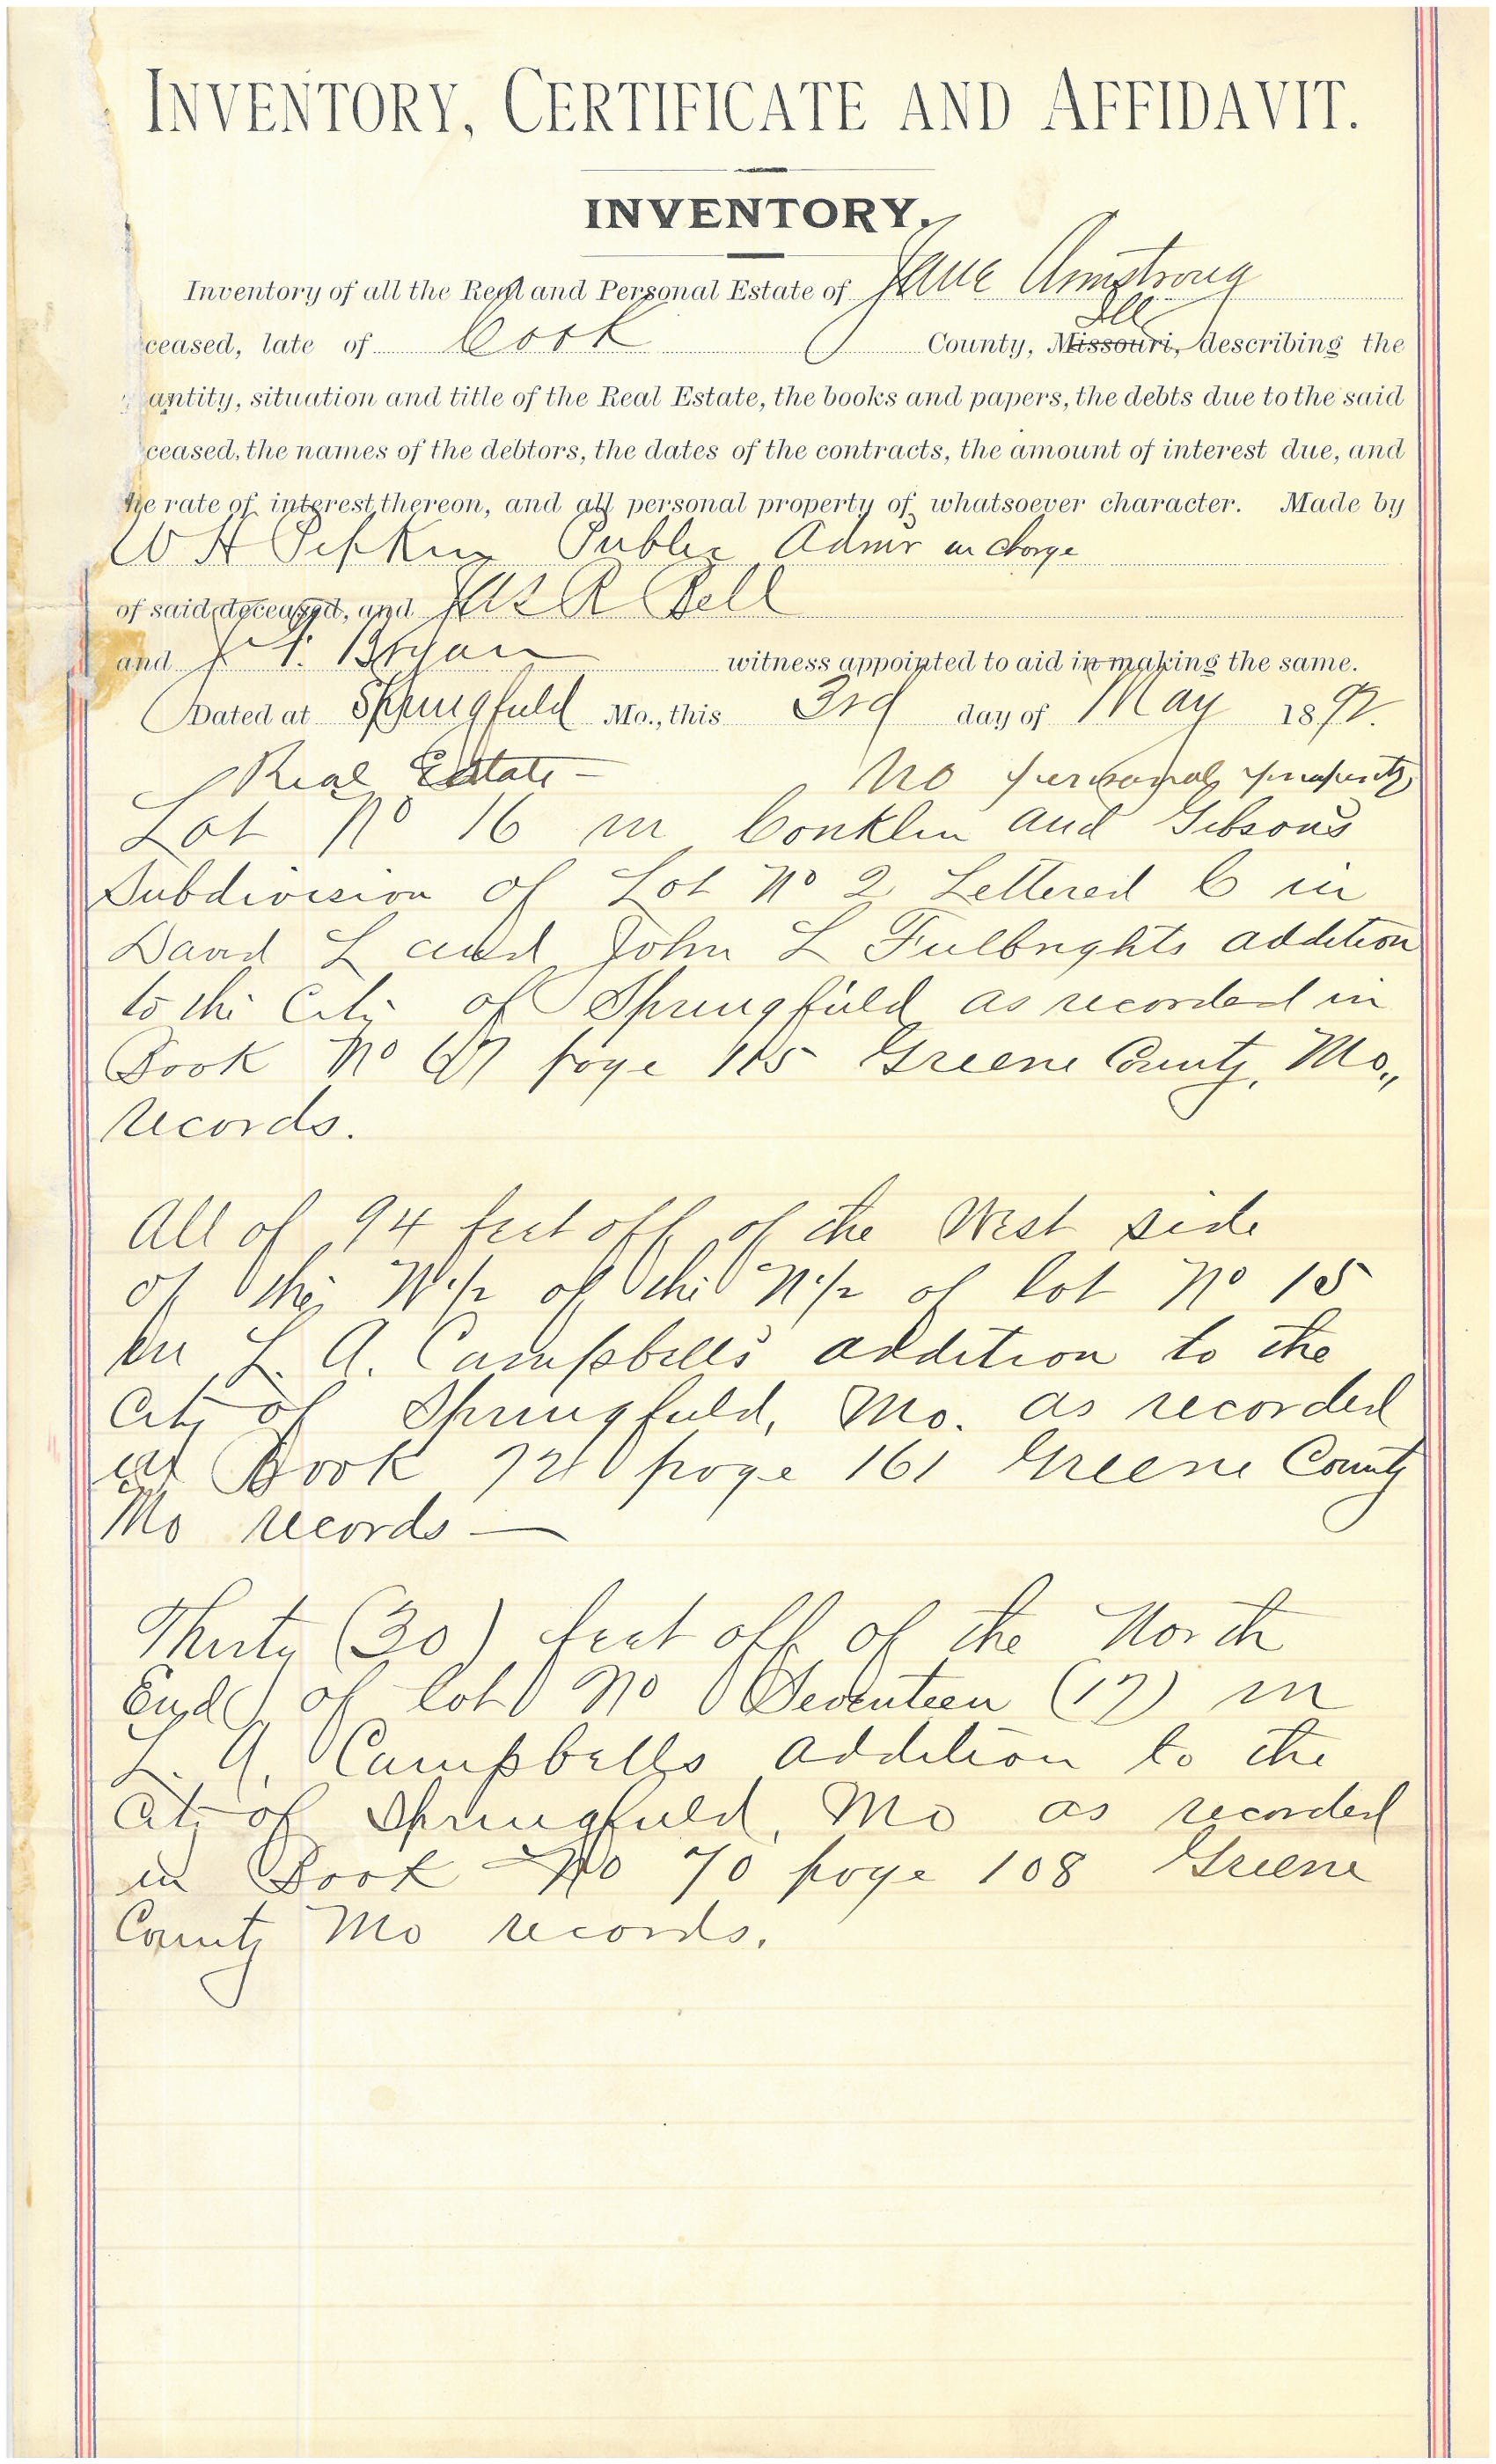 INVENTORY, CERTIFICATE AND AFFIDAVIT.
INVENTORY.
Inventory of all the Real and Personal Estate of Jane Armstrong
ceased, late of Cook County, Missouri, Ill describing the
antity, situation and title of the Real Estate, the books and papers, the debts due to the said
ceased, the names of the debtors, the dates of the contracts, the amount of interest due, and
he rate of interest thereon, and all personal property of whatsoever character. Made by
W H Pipkin Public Admr in charge
of said deceased, and Jas R Bell
and J T. Bryan witness appointed to aid in making the same.
Dated at Springfield Mo., this 3rd day of May 1892.
Real Estate — No personal property
Lot No 16 in Conklin and Gibson's
Subdivision of Lot No 2 Lettered C in
David L and John L Fulbrights addition
to the City of Springfield as recorded in
Book No page Greene County, Mo.,
records.
All of 94 feet off of the West side
of the W. 1/2 of the N. 1/2 of lot No 15
in L. A. Campbells addition to the
City of Springfield, Mo. as recorded
at Book 72 page 161 Greene County
Mo records —
Thirty (30) feet off of the North
End of lot No Seventeen (17) in
L. A. Campbells addition to the
City of Springfield, Mo as recorded
in Book No 70 page 108 Greene
County Mo records.